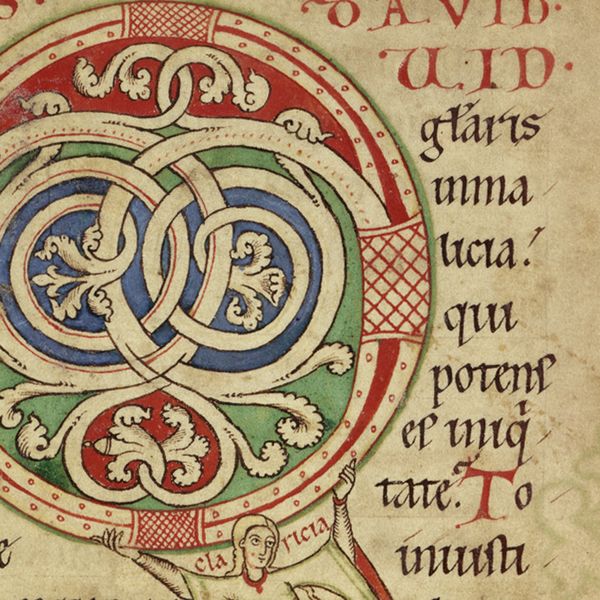 DAVID.
UID.
gl̄aris
inma
licia.
qui
potens
es iniq̇
tate. To
inuisti
claricia